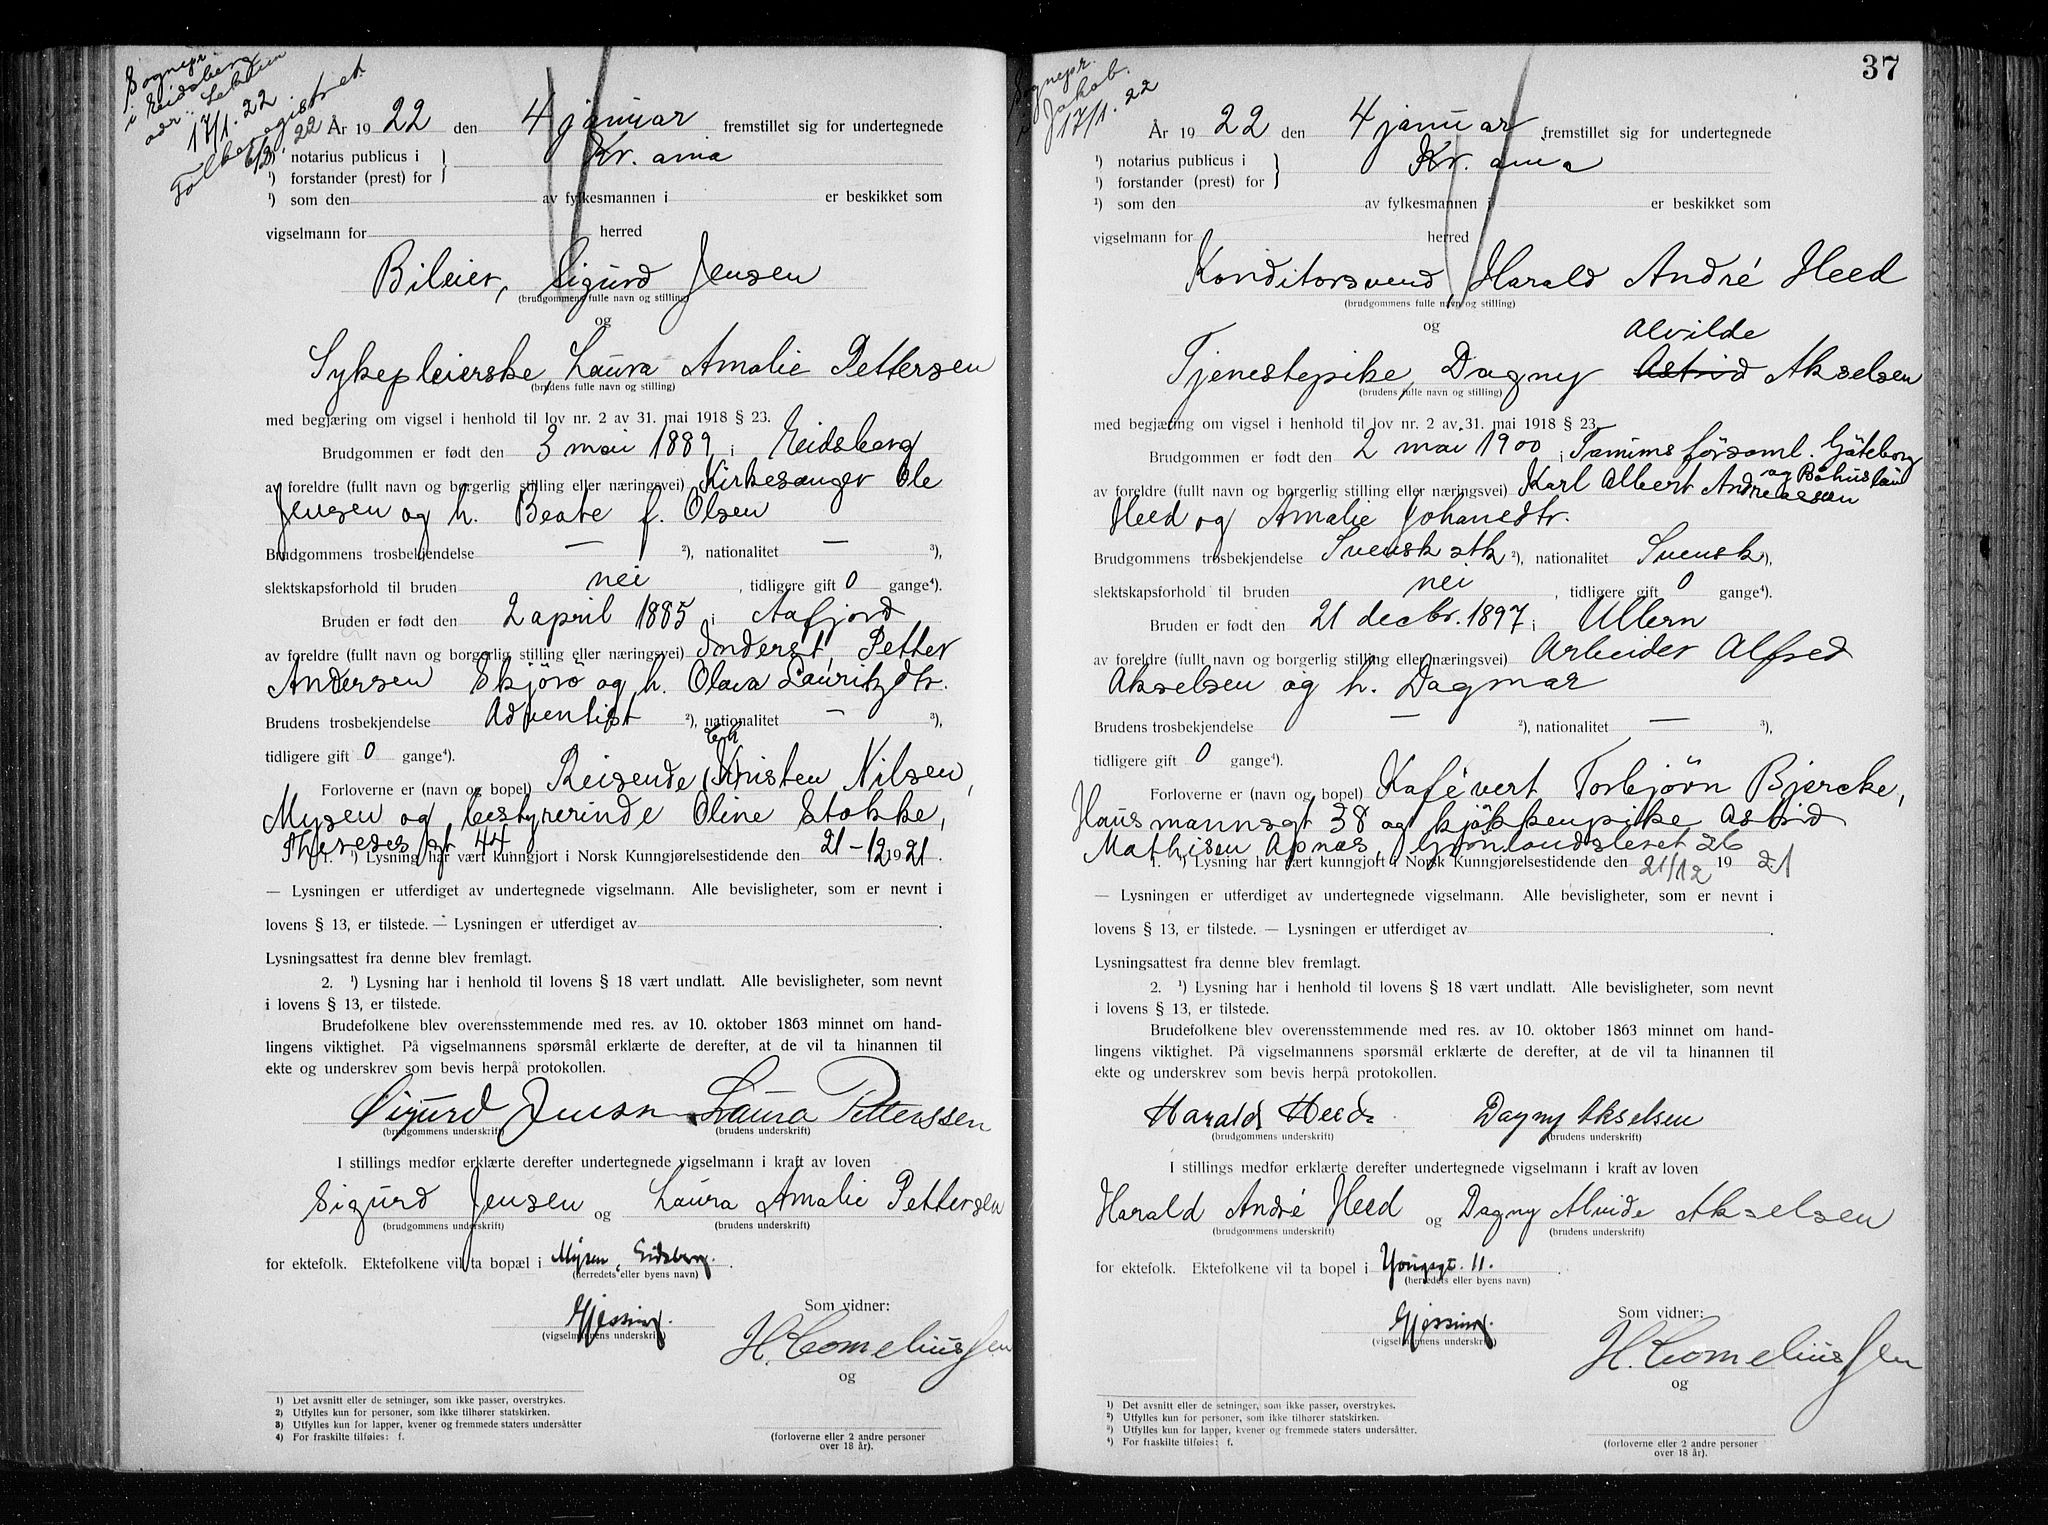 Sognepr.
i Eidsberg
adr.: Lekum
17/1. 22
Folkeregistret
22
År 1922 den 4 januar fremstillet sig for undertegnede
¹) notarius publicus i } Kr. ania
¹) forstander (prest) for
¹) som den av fylkesmannen i er beskikket som
vigselmann for herred
Bileier, Sigurd Jensen
(brudgommens fulle navn og stilling)
og
Sykepleierske, Laura Amalie Pettersen
(brudens fulle navn og stilling)
med begjæring om vigsel i henhold til lov nr. 2 av 31. mai 1918 § 23.
Brudgommen er født den 3 mai 1889 i Eidsberg
av foreldre (fullt navn og borgerlig stilling eller næringsvei) Kirkesanger Ole
Jensen og h. Beate f. Olsen
Brudgommens trosbekjendelse — ²), nationalitet — ³),
slektskapsforhold til bruden nei, tidligere gift 0 gange⁴).
Bruden er født den 2 april 1885 i Aafjord
av foreldre (fullt navn og borgerlig stilling eller næringsvei) Inderst, Petter
Andersen Skjörö og h. Olava Lauritzdtr.
Brudens trosbekjendelse Adventist ²), nationalitet — ³),
tidligere gift 0 gange⁴).
Forloverne er (navn og bopel) Reisende Kristen Nilsen,
Mysen og bestyrerinde Oline Stokke,
Thereses gt 44
1. ¹) Lysning har vært kunngjort i Norsk Kunngjørelsestidende den 21-12 1921.
— Lysningen er utferdiget av undertegnede vigselmann. Alle bevisligheter, som er nevnt i
lovens § 13, er tilstede. — Lysningen er utferdiget av .
Lysningsattest fra denne blev fremlagt.
2. ¹) Lysning har i henhold til lovens § 18 vært undlatt. Alle bevisligheter, som nevnt
i lovens § 13, er tilstede.
Brudefolkene blev overensstemmende med res. av 10. oktober 1863 minnet om hand-
lingens viktighet. På vigselmannens spørsmål erklærte de derefter, at de vil ta hinannen til
ekte og underskrev som bevis herpå protokollen.
Sigurd Jensen Laura Petterssen
(brudgommens underskrift) (brudens underskrift)
I stillings medfør erklærte derefter undertegnede vigselmann i kraft av loven
Sigurd Jensen og Laura Amalie Pettersen
(brudgommens underskrift) (brudens underskrift)
for ektefolk. Ektefolkene vil ta bopæl i Mysen, Eidsberg.
(herredets eller byens navn)
Gjessing.
(vigselmannens underskrift)
Som vidner:
H. Corneliussen
og
1) Det avsnitt eller de setninger, som ikke passer, overstrykes.
2) Utfylles kun for personer, som ikke tilhører statskirken.
3) Utfylles kun for lapper, kvener og fremmede staters undersåtter
4) For fraskilte tilføies: f.
(forloverne eller 2 andre personer
over 18 år).
37
Sognepr.
i Jakob.
17/1. 22
År 1922 den 4 januar fremstillet sig for undertegnede
¹) notarius publicus i } Kr. ania
¹) forstander (prest) for
¹) som den av fylkesmannen i er beskikket som
vigselmann for herred
Konditorsvend, Harald André Heed
(brudgommens fulle navn og stilling)
og
Alvilde
Tjenestepike, Dagny Astrid Akselsen
(brudens fulle navn og stilling)
med begjæring om vigsel i henhold til lov nr. 2 av 31. mai 1918 § 23.
Brudgommen er født den 2 mai 1900 i Tanums församl. Göteborg
og Bohuslän
av foreldre (fullt navn og borgerlig stilling eller næringsvei) Karl Albert Andreassen
Heed og Amalie Johanedtr.
Brudgommens trosbekjendelse Svensk stk ²), nationalitet Svensk ),
slektskapsforhold til bruden nei, tidligere gift 0 gange⁴).
Bruden er født den 21 decbr. 1897 i Ullern
av foreldre (fullt navn og borgerlig stilling eller næringsvei) Arbeider Alfred
Akselsen og h. Dagmar
Brudens trosbekjendelse — ²), nationalitet — ³),
tidligere gift 0 gange⁴).
Forloverne er (navn og bopel) Kafévert Torbjörn Bjercke,
Hausmannsgt 38 og kjökkenpike Astrid
Mathisen Apnes, Grönlandsleret 26
1. ¹) Lysning har vært kunngjort i Norsk Kunngjørelsestidende den 21/12 19 21
— Lysningen er utferdiget av undertegnede vigselmann. Alle bevisligheter, som er nevnt i
lovens § 13, er tilstede. — Lysningen er utferdiget av .
Lysningsattest fra denne blev fremlagt.
2. ¹) Lysning har i henhold til lovens § 18 vært undlatt. Alle bevisligheter, som nevnt
i lovens § 13, er tilstede.
Brudefolkene blev overensstemmende med res. av 10. oktober 1863 minnet om hand-
lingens viktighet. På vigselmannens spørsmål erklærte de derefter, at de vil ta hinannen til
ekte og underskrev som bevis herpå protokollen.
Harald Heed. Dagny Akselsen
(brudgommens underskrift) (brudens underskrift)
I stillings medfør erklærte derefter undertegnede vigselmann i kraft av loven
Harald André Heed og Dagny Alvide Akselsen
(brudgommens underskrift) (brudens underskrift)
for ektefolk. Ektefolkene vil ta bopel i Youngsgt. 11.
(herredets eller byens navn)
Gjessing.
(vigselmannens underskrift)
Som vidner:
H. Corneliussen
og
¹) Det avsnitt eller de setninger, som ikke passer, overstrykes.
²) Utfylles kun for personer, som ikke tilhører statskirken.
³) Utfylles kun for lapper, kvener og fremmede staters undersåtter.
⁴) For fraskilte tilføies: f.
(forloverne eller 2 andre personer
over 18 år).